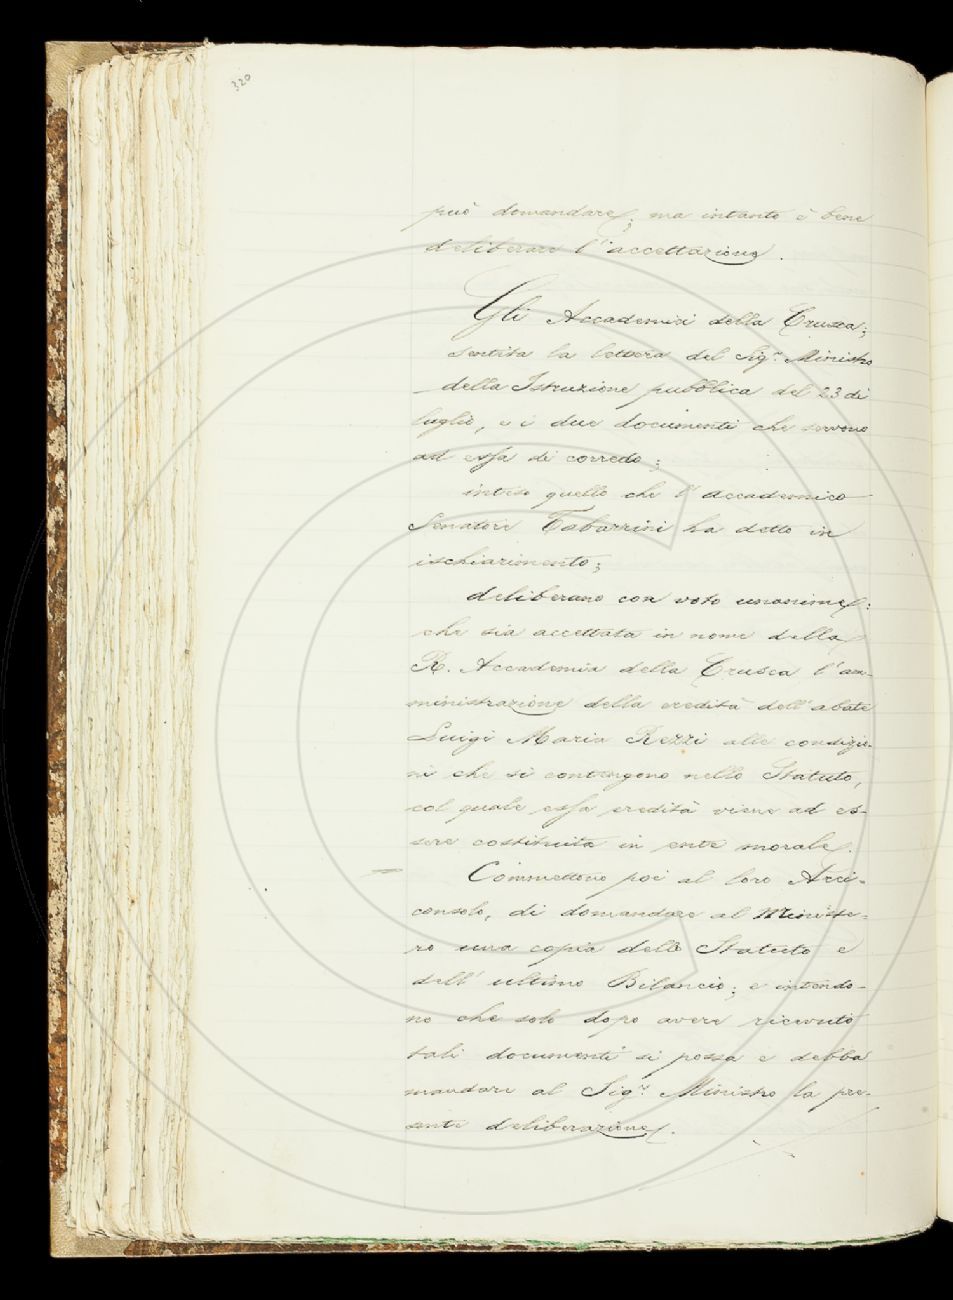 320
può domandare; ma intanto è bene
deliberare l'accettazione.
Gli Accademici della Crusca;
sentita la lettera del Sig.r Ministro
della Istruzione pubblica del 23 di
luglio, e i due documenti che servono
ad essa di corredo;
inteso quello che l'accademico
Senatore Tabarrini ha detto in
ischiarimento;
deliberano con voto unanime:
che sia accettata in nome della
R. Accademia della Crusca l'am-
ministrazione della eredità dell'abate
Luigi Maria Rezzi alle condizio-
ni che si contengono nello Statuto,
col quale essa eredità viene ad es-
sere costituita in ente morale.
Commettono poi al loro Arci-
consolo, di domandare al Ministe-
ro una copia dello Statuto e
dell'ultimo Bilancio; e intendo-
no che solo dopo avere ricevuto
tali documenti si possa e debba
mandare al Sig.r Ministro la pre-
sente deliberazione.